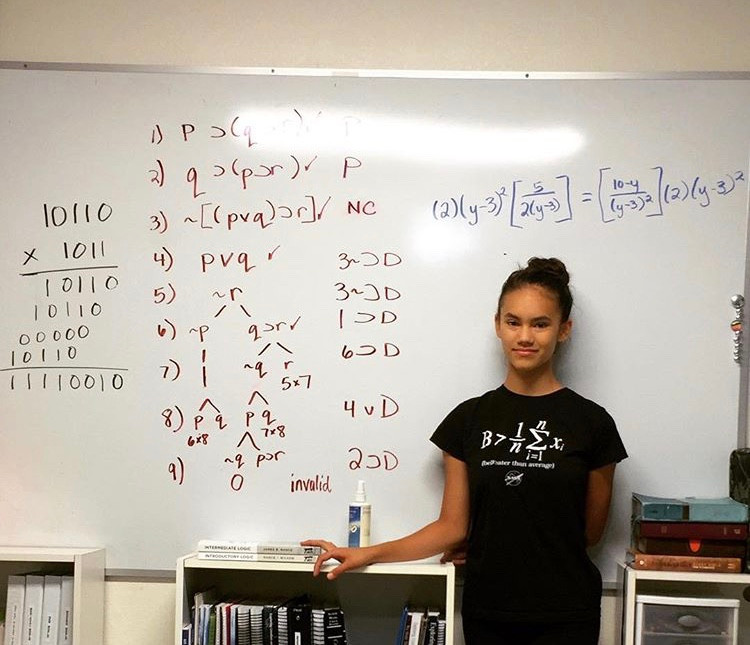 10110
× 1011
10110
10110
00000
10110
11110010
1) P ⊃ (q ⊃ r) ✓ P
2) q ⊃ (p ⊃ r) ✓ P
3) ~[(p ∨ q) ⊃ r] ✓ NC
4) p ∨ q ✓ 3~⊃D
5) ~r 3~⊃D
6) ~p q ⊃ r ✓ 1⊃D
7) ~q r 6⊃D
5x7
8) p q p q 4∨D
6x8 7x8
9) ~q p⊃r 2⊃D
O invalid
(2)(y-3)² [5/2(y-3)] = [10-y/(y-3)²](2)(y-3)²
B > 1/n Σ i=1 n xᵢ
(be greater than average)
NASA
INTERMEDIATE LOGIC JAMES B. NANCE
INTRODUCTORY LOGIC